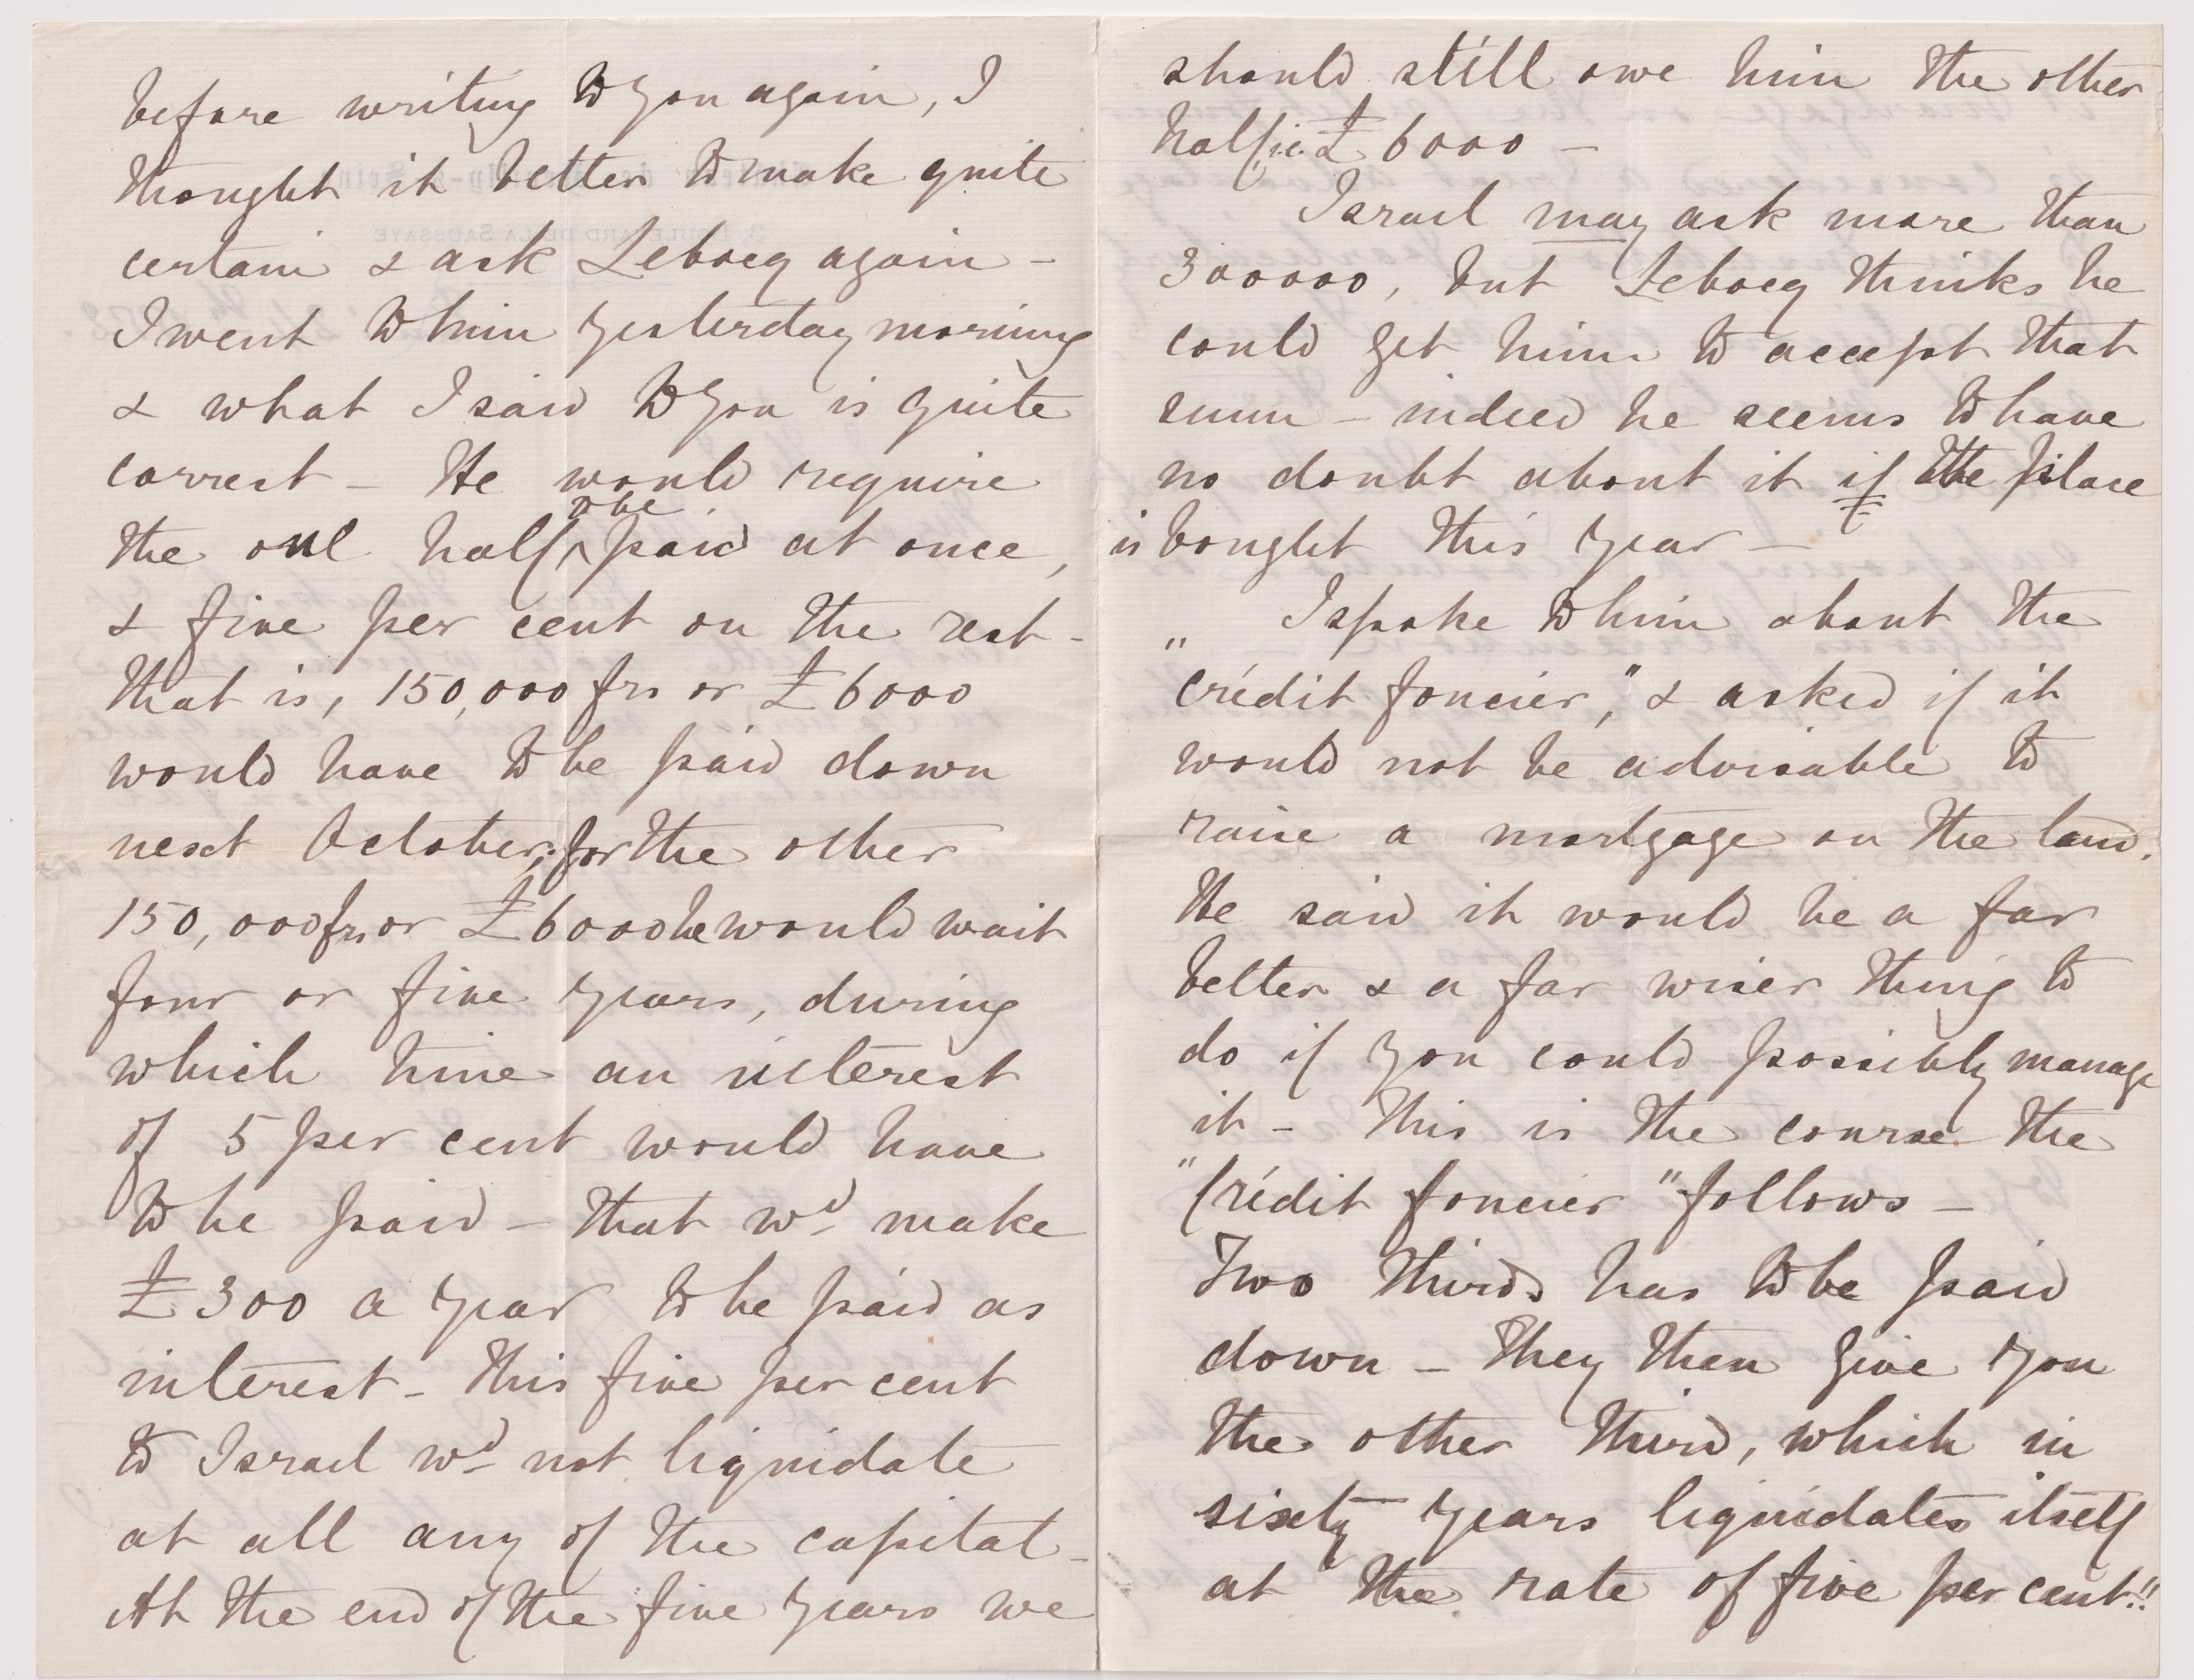 before writing to you again, I
thought it better to make quite
certain & ask Lebocq again -
I went to him yesterday morning
& what I said to you is quite
correct - He would require
the one half ^to be paid at once,
& five per cent on the rest -
that is, 150,000 frs or £6000
would have to be paid down
next October; for the other
150,000 frs or £6000 he would wait
four or five years, during
which time an interest
of 5 per cent would have
to be paid - that wd make
£300 a year to be paid as
interest - This five per cent
to Israel wd not liquidate
at all any of the capital -
At the end of the five years we
should still owe him the other
half ie. £6000 -
Israel may ask more than
300000, but Lebocq thinks he
could get him to accept that
sum - indeed he seems to have
no doubt about it if the place
is bought this year -
I spoke to him about the
"crédit foncier," & asked if it
would not be advisable to
raise a mortgage on the land.
He said it would be a far
better & a far wiser thing to
do if you could possibly manage
it - This is the course the
"Crédit foncier" follows -
Two thirds has to be paid
down - They then give you
the other third, which in
sixty years liquidates itself
at the rate of five per cent!!